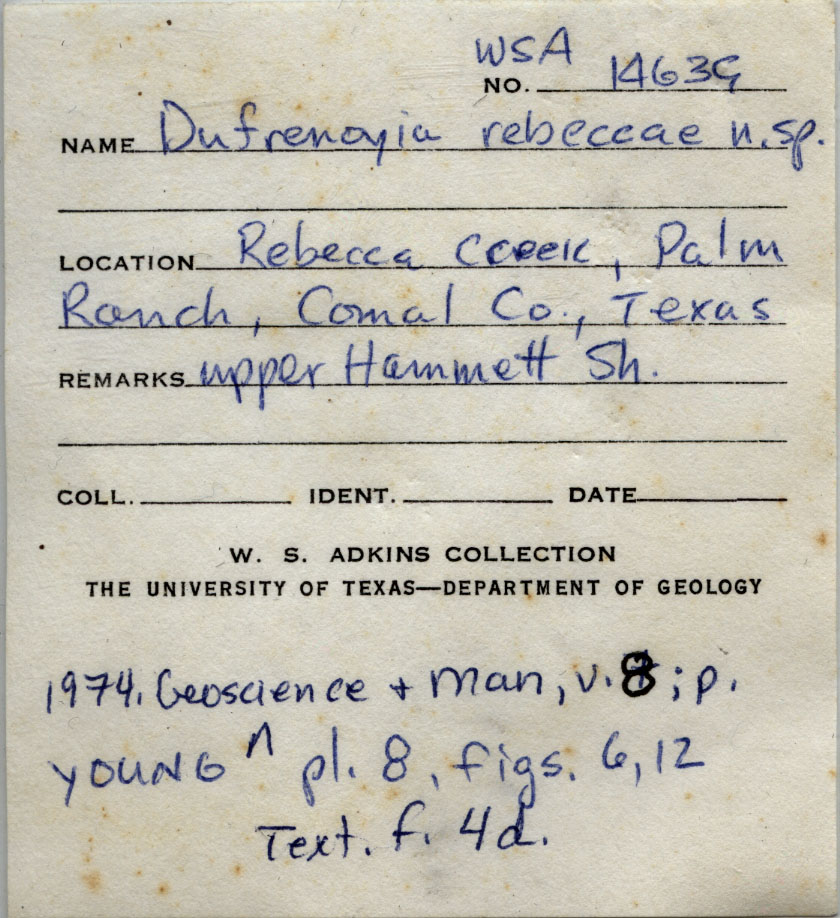 WSA
NO. 14639
NAME Dufrenoyia rebeccae n.sp.
LOCATION Rebecca Creek, Palm
Ranch, Comal Co., Texas
REMARKS upper Hammett Sh.
COLL. IDENT. DATE
W. S. ADKINS COLLECTION
THE UNIVERSITY OF TEXAS—DEPARTMENT OF GEOLOGY
1974. Geoscience + Man, v. 8; p.
YOUNG ^ pl. 8, figs. 6, 12
Text. f. 4d.